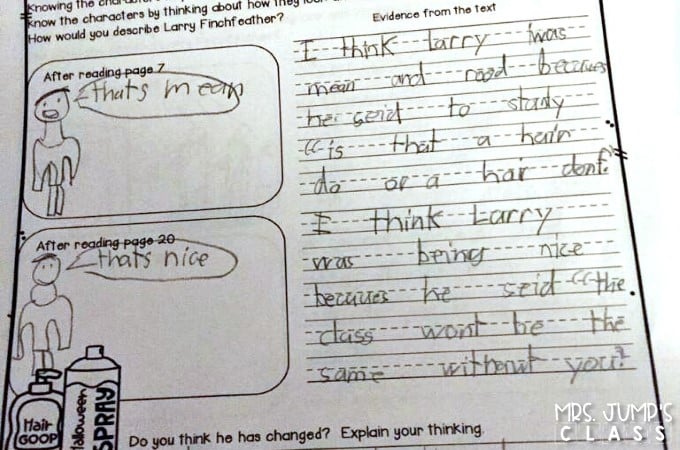 Knowing the
Know the characters by thinking about how they look
How would you describe Larry Finchfeather?
Evidence from the text
After reading page 7
thats mean
I think Larry was
mean and rood becuues
he seid to study
“is that a hair
do or a hair dont.
After reading page 20
thats nice
I think Larry
was being nice
becuues he seid “the
class wont be the
same without you?
Hair
GOOP
Halloween
SPRAY
Do you think he has changed? Explain your thinking.
MRS. JUMP'S
CLASS